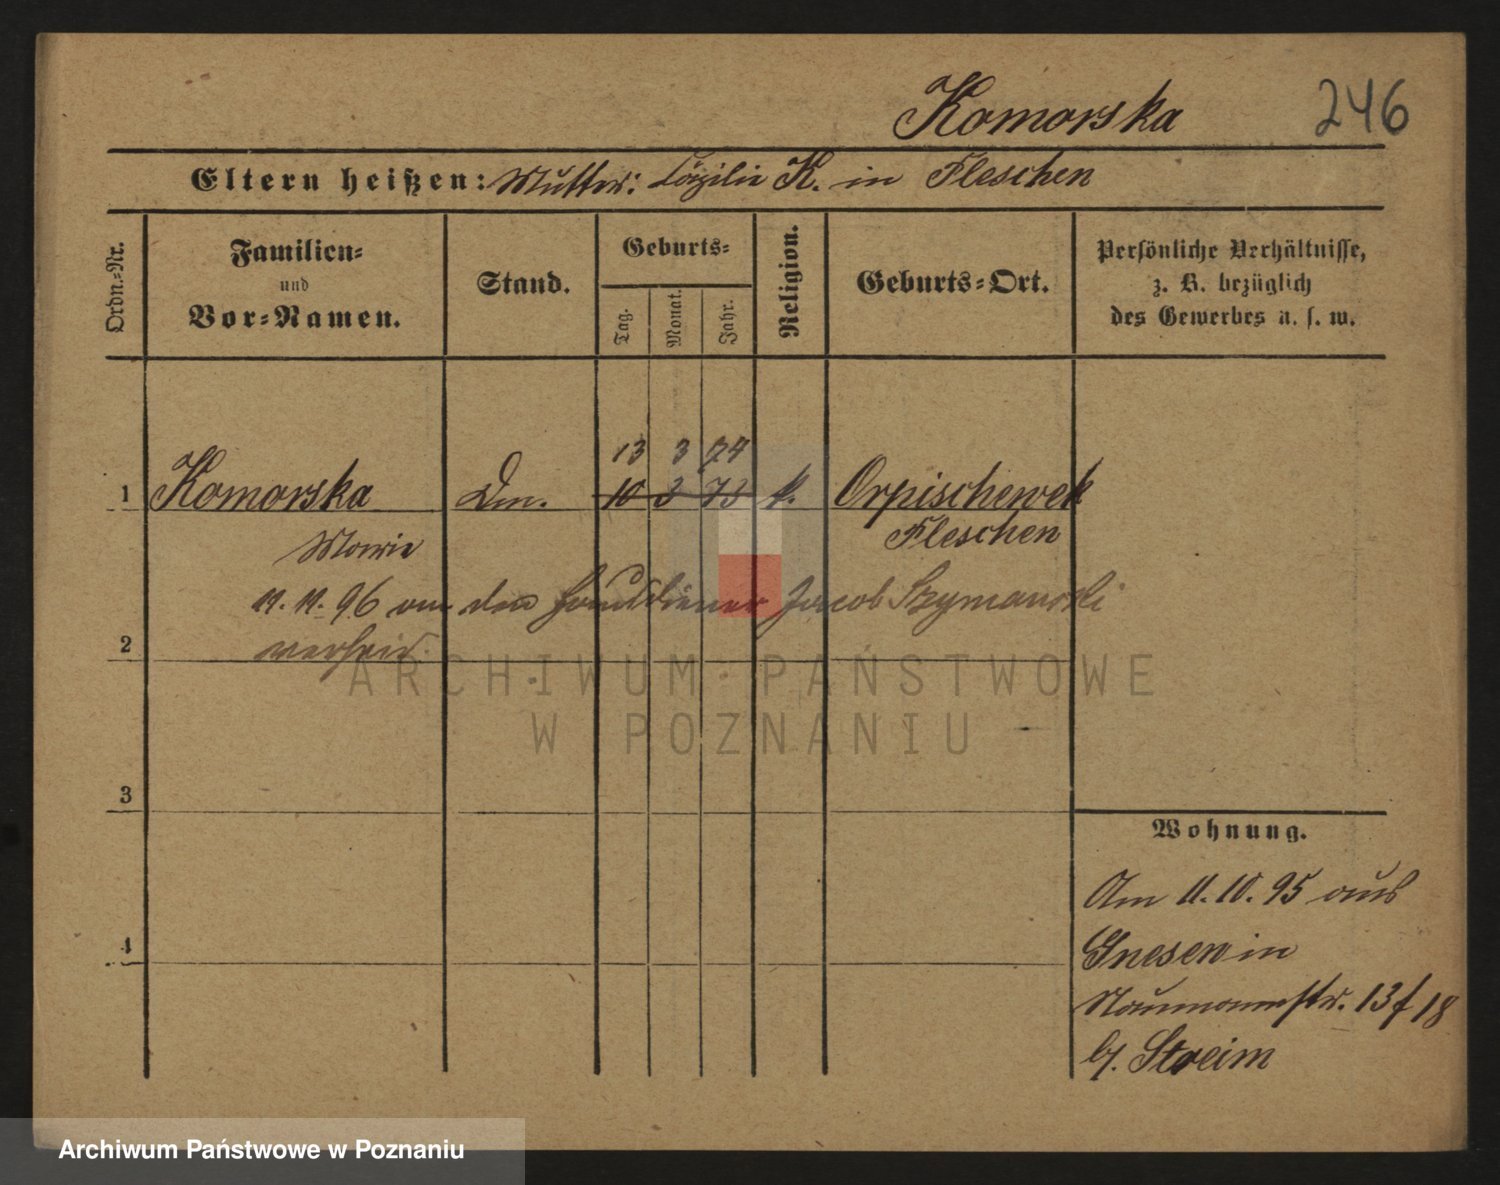 Komorska 246
Eltern heißen: Mutter: Cäzilie K. in Pleschen
Ordn.-Nr.
Familien-
und
Vor-Namen.
Stand.
Geburts-
Tag.
Monat.
Jahr.
Religion.
Geburts-Ort.
Persönliche Verhältnisse,
z. B. bezüglich
des Gewerbes u. s. w.
13 3 74
1 Komorska Dm. 10 3 73 k. Orpischewek
Marie Pleschen
11. 11. 96 an den Hausdiener Jacob Szymanski
2 verheir.
3
4
Wohnung.
Am 11. 10. 95 aus
Gnesen in
Naumannstr. 13 f 18
b/. Streim
ARCHIWUM PAŃSTWOWE
W POZNANIU
Archiwum Państwowe w Poznaniu